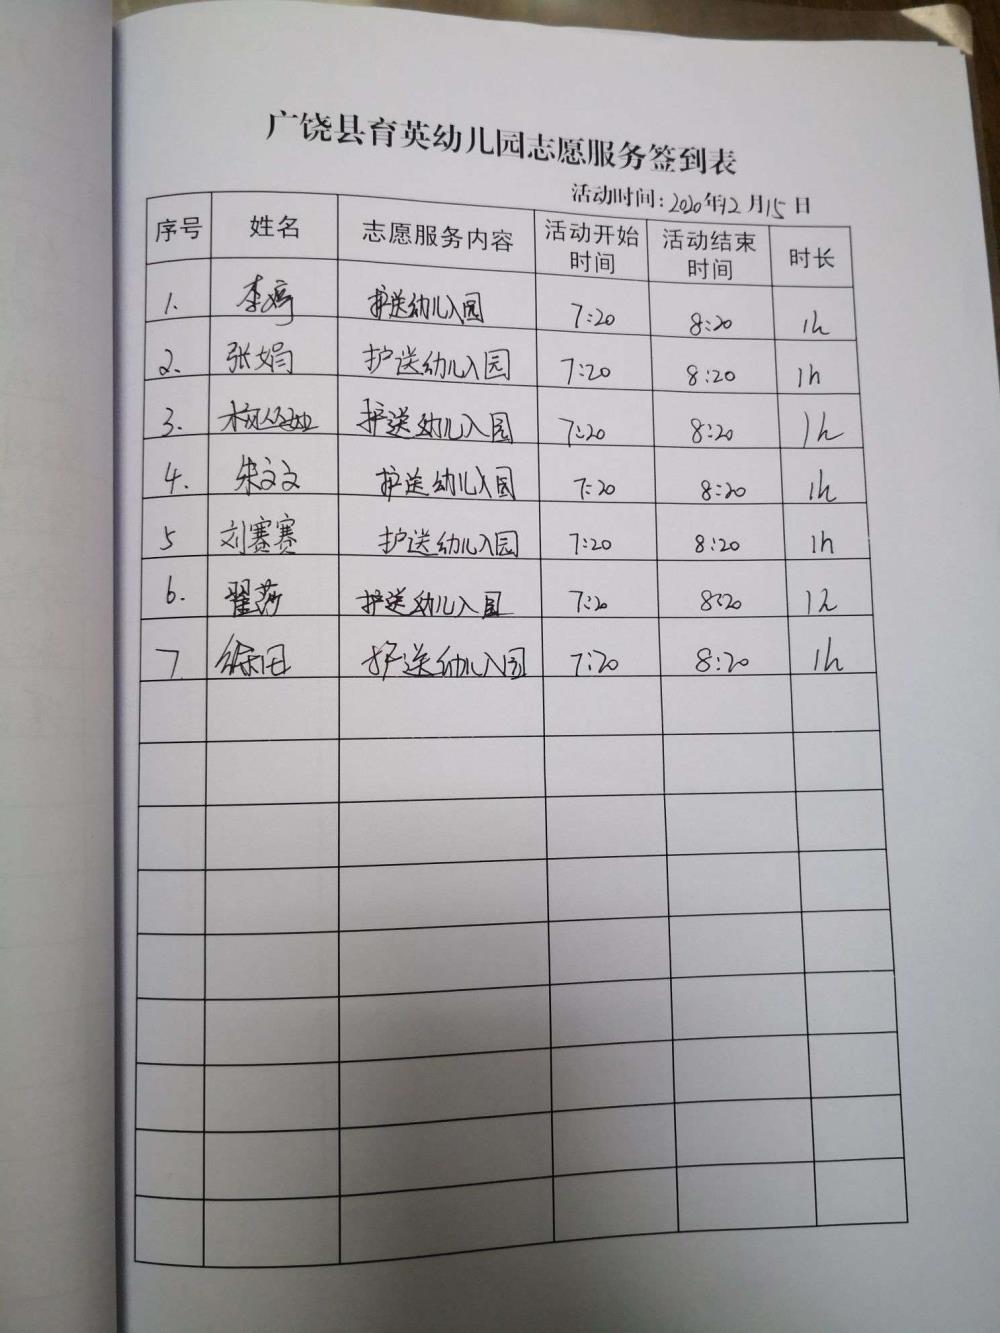 广饶县育英幼儿园志愿服务签到表
活动时间:2020年12月15日
序号 姓名 志愿服务内容 活动开始时间 活动结束时间 时长
1. 李婷 护送幼儿入园 7:20 8:20 1h
2. 张娟 护送幼儿入园 7:20 8:20 1h
3. 护送幼儿入园 7:20 8:20 1h
4. 朱文文 护送幼儿入园 7:20 8:20 1h
5 刘赛赛 护送幼儿入园 7:20 8:20 1h
6. 翟莎 护送幼儿入园 7:20 8:20 1h
7 护送幼儿入园 7:20 8:20 1h